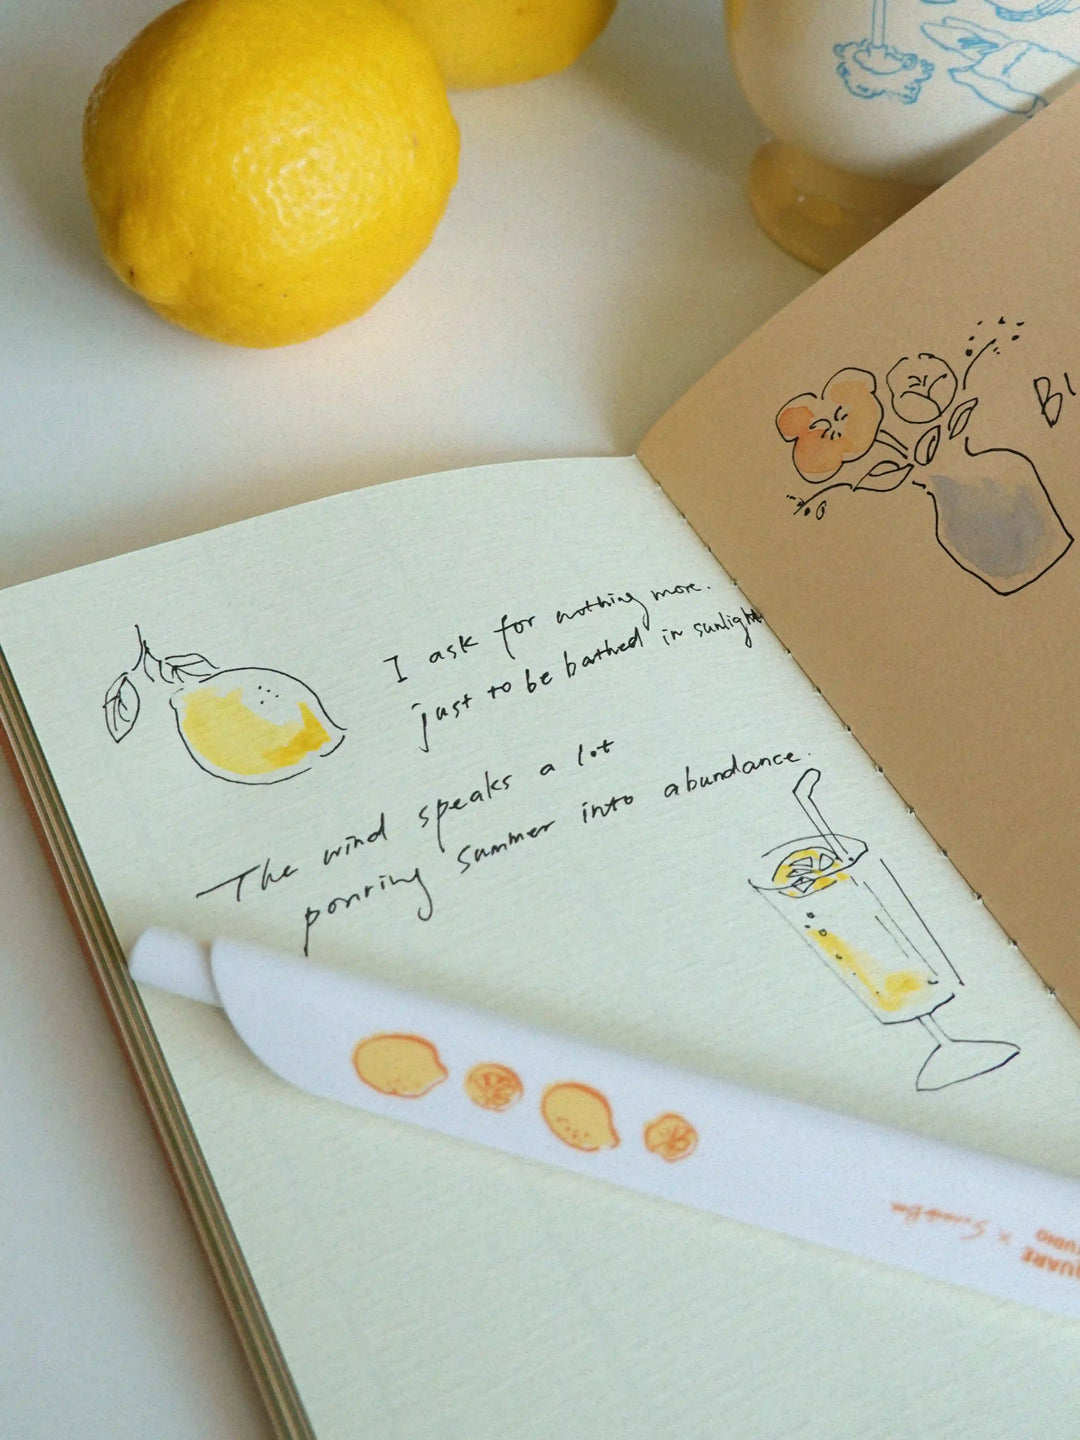 I ask for nothing more.
just to be bathed in sunlight
The wind speaks a lot
pouring summer into abundance.